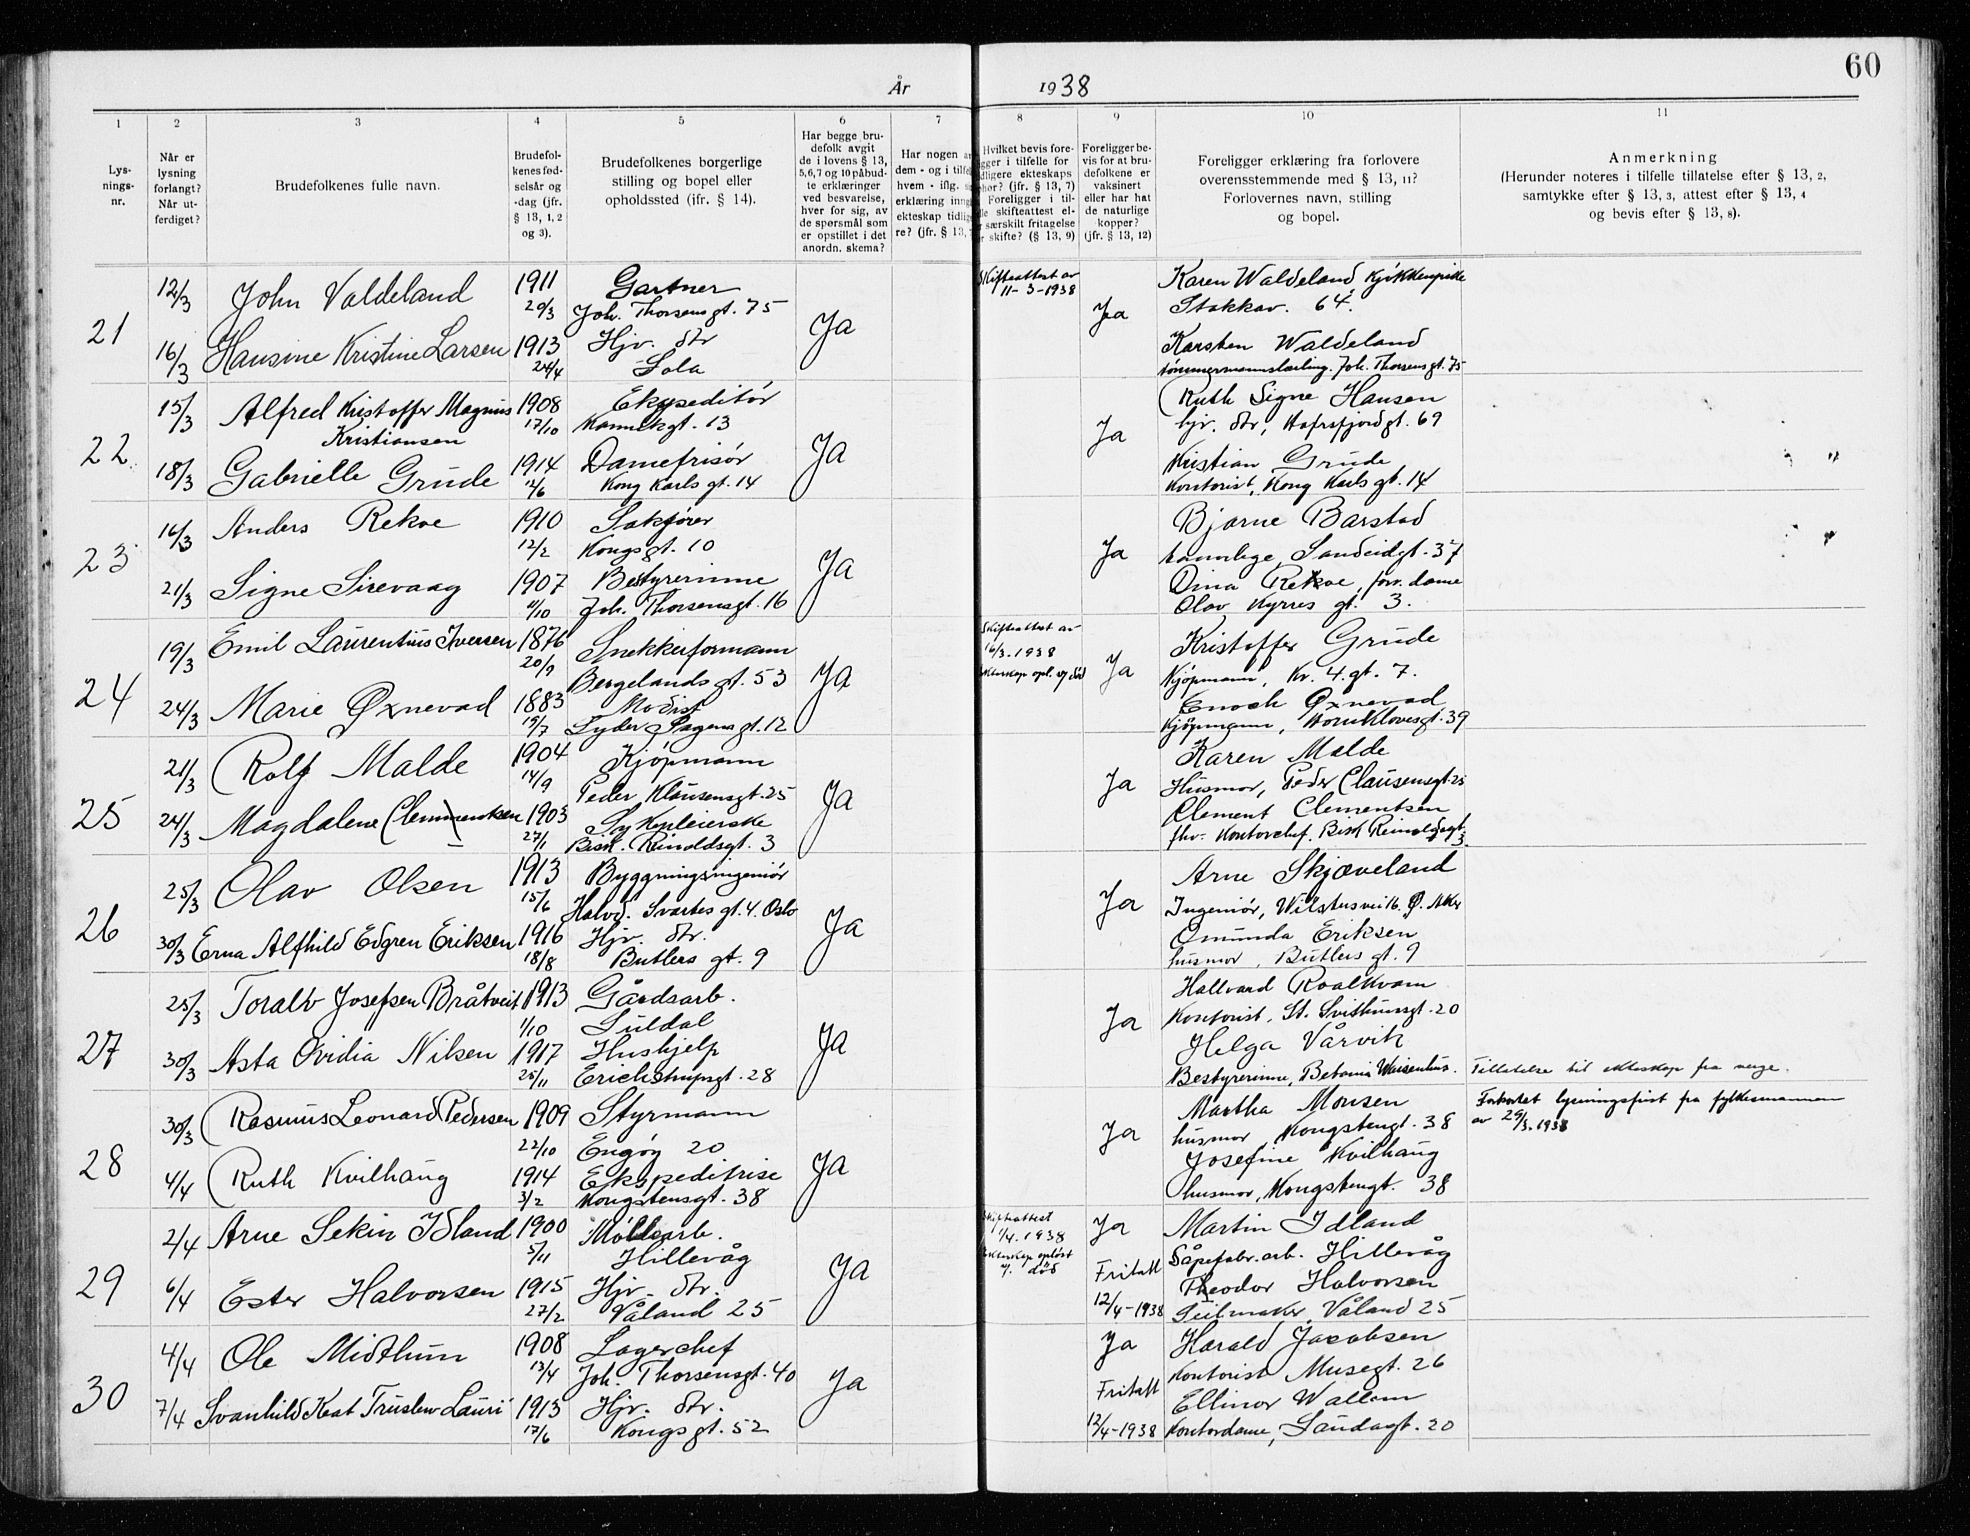 60
År 1938
1 2 3 4 5 6 7 8 9 10 11
Lys-
nings-
nr.
Når er
lysning
forlangt?
Når ut-
ferdiget?
Brudefolkenes fulle navn.
Brudefol-
kenes fød-
selsår og
-dag (jfr.
§ 13, 1, 2
og 3).
Brudefolkenes borgerlige
stilling og bopel eller
opholdssted (jfr. § 14).
Har begge bru-
defolk avgit
de i lovens § 13,
5, 6, 7 og 10 påbud-
te erklæringer
ved besvarelse,
hver for sig, av
de spørsmål som
er opstillet i det
anordn. skema?
Har nogen
dem - og i
hvem - iflg.
erklæring
ekteskap
re? (jfr. § 13,
Hvilket bevis fore-
ligger i tilfelle for
tidligere ekteskaps
ophør? (jfr. § 13, 7)
Foreligger i til-
felle skifteattest el-
særskilt fritagelse
skifte? (§ 13, 9)
Foreligger be-
vis for at bru-
defolkene er
vaksinert
eller har hat
de naturlige
kopper?
(jfr. § 13, 12)
Foreligger erklæring fra forlovere
overensstemmende med § 13, 11?
Forlovernes navn, stilling
og bopel.
Anmerkning
(Herunder noteres i tilfelle tillatelse efter § 13, 2,
samtykke efter § 13, 3, attest efter § 13, 4
og bevis efter § 13, 8).
21
12/3 John Valdeland 1911 Gartner Skifteattest av Karen Waldeland
20/3 Joh. Thorsensgt. 75 11-3-1938 Ja Stokkav. 64
Ja
16/3 Hansine Kristine Larsen 1913 Hjv. dtr Karsten Waldeland
24/4 Sola tømmermannslærling. Joh. Thorsensgt. 75
22
15/3 Alfred Kristoffer Magnus 1908 Ekspeditør Ruth Signe Hansen
Kristiansen 17/10 Kannikgt. 13 Ja hjv. dtr, Hafrsfjordgt. 69
Ja
18/3 Gabrielle Grude 1914 Damefrisør Kristian Grude
12/6 Kong Karls gt. 14 Kontorist, Kong Karls gt. 14
23
16/3 Anders Rekve 1910 Sakfører Bjarne Barstad
12/2 Kongsgt. 10 Ja tannlege, Sandeidgt. 37
Ja
21/3 Signe Sirevaag 1907 Bestyrerinne Dina Rekve, forr. dame
11/10 Joh. Thorsensgt. 16 Olav Kyrres gt. 3.
24
19/3 Emil Laurentius Iversen 1876 Snekkerformann Skifteattest av Kristoffer Grude
20/9 Bergelands gt. 53 16/3-1938 Ja Kjøpmann, Kr. 4. gt. 7.
Ekteskap opl. v/ død
Ja
24/3 Marie Øxnevad 1883 Modist Enoch Øxnevad
15/7 Lyder Sagens gt. 12 Kjøpmann, Hornklovesgt. 39
25
21/3 Rolf Malde 1904 Kjøpmann Karen Malde
14/9 Peder Klausensgt. 25 Ja Husmor, Peder Clausensgt. 25
Ja
24/3 Magdalene Clementsen 1903 Sykepleierske Clement Clementsen
27/1 Bisk. Reinoldsgt. 3 fhv. Kontorchef. Bisk Reinoldsgt. 3.
26
25/3 Olav Olsen 1913 Byggningsingeniør Arne Skjæveland
15/6 Halvd. Svartes gt. 4. Oslo Ja Ingeniør, Wilstersvei 16. Ø. Aker
Ja
30/3 Erna Alfhild Edgren Eriksen 1916 Hjv. dtr. Omunda Eriksen
18/8 Butlers gt. 9 husmor, Butlers gt. 9
27
25/3 Toralv Josefsen Bråtveit 1913 Gårdsarb. Hallvard Roalkvam
1/10 Suldal Ja Kontorist, St. Svithunsgt. 20
Ja
30/3 Asta Ovidia Nilsen 1917 Hushjelp Helga Vårvik
25/11 Erichstrupsgt. 28 Bestyrerinne, Betania Waisenhus. Tillatelse til ekteskap fra verge.
28
30/3 Rasmus Leonard Pedersen 1909 Styrmann Martha Monsen Forkortet lysningsfrist fra fylkesmannen
22/10 Engøy 20 Ja husmor, Kongstensgt. 38 av 29/3.1938
Ja
4/4 Ruth Kvilhaug 1914 Ekspeditrise Josefine Kvilhaug
3/2 Kongstensgt. 38 husmor, Kongstensgt. 38
29
2/4 Arne Sekin Idland 1900 Møllearb. Skifteattest Ja Martin Idland
5/11 Hillevåg 1/4. 1938 Såpefabr. arb. Hillevåg
Ekteskap opløst
v. død
Ja
6/4 Ester Halvorsen 1915 Hjv. dtr. Fritatt Theodor Halvorsen
27/2 Våland 25 12/4-1938 Seilmaker, Våland 25
30
4/4 Ole Midthun 1908 Lagerchef Ja Harald Jacobsen
13/4 Joh. Thorsensgt. 40 Kontorist Musegt. 26
Ja
7/4 Svanhild Keat Truslew Lauri 1913 Hjv. dtr. Fritatt Ellinor Wallem
17/6 Kongsgt. 52 12/4-1938 Kontordame, Saudagt. 20